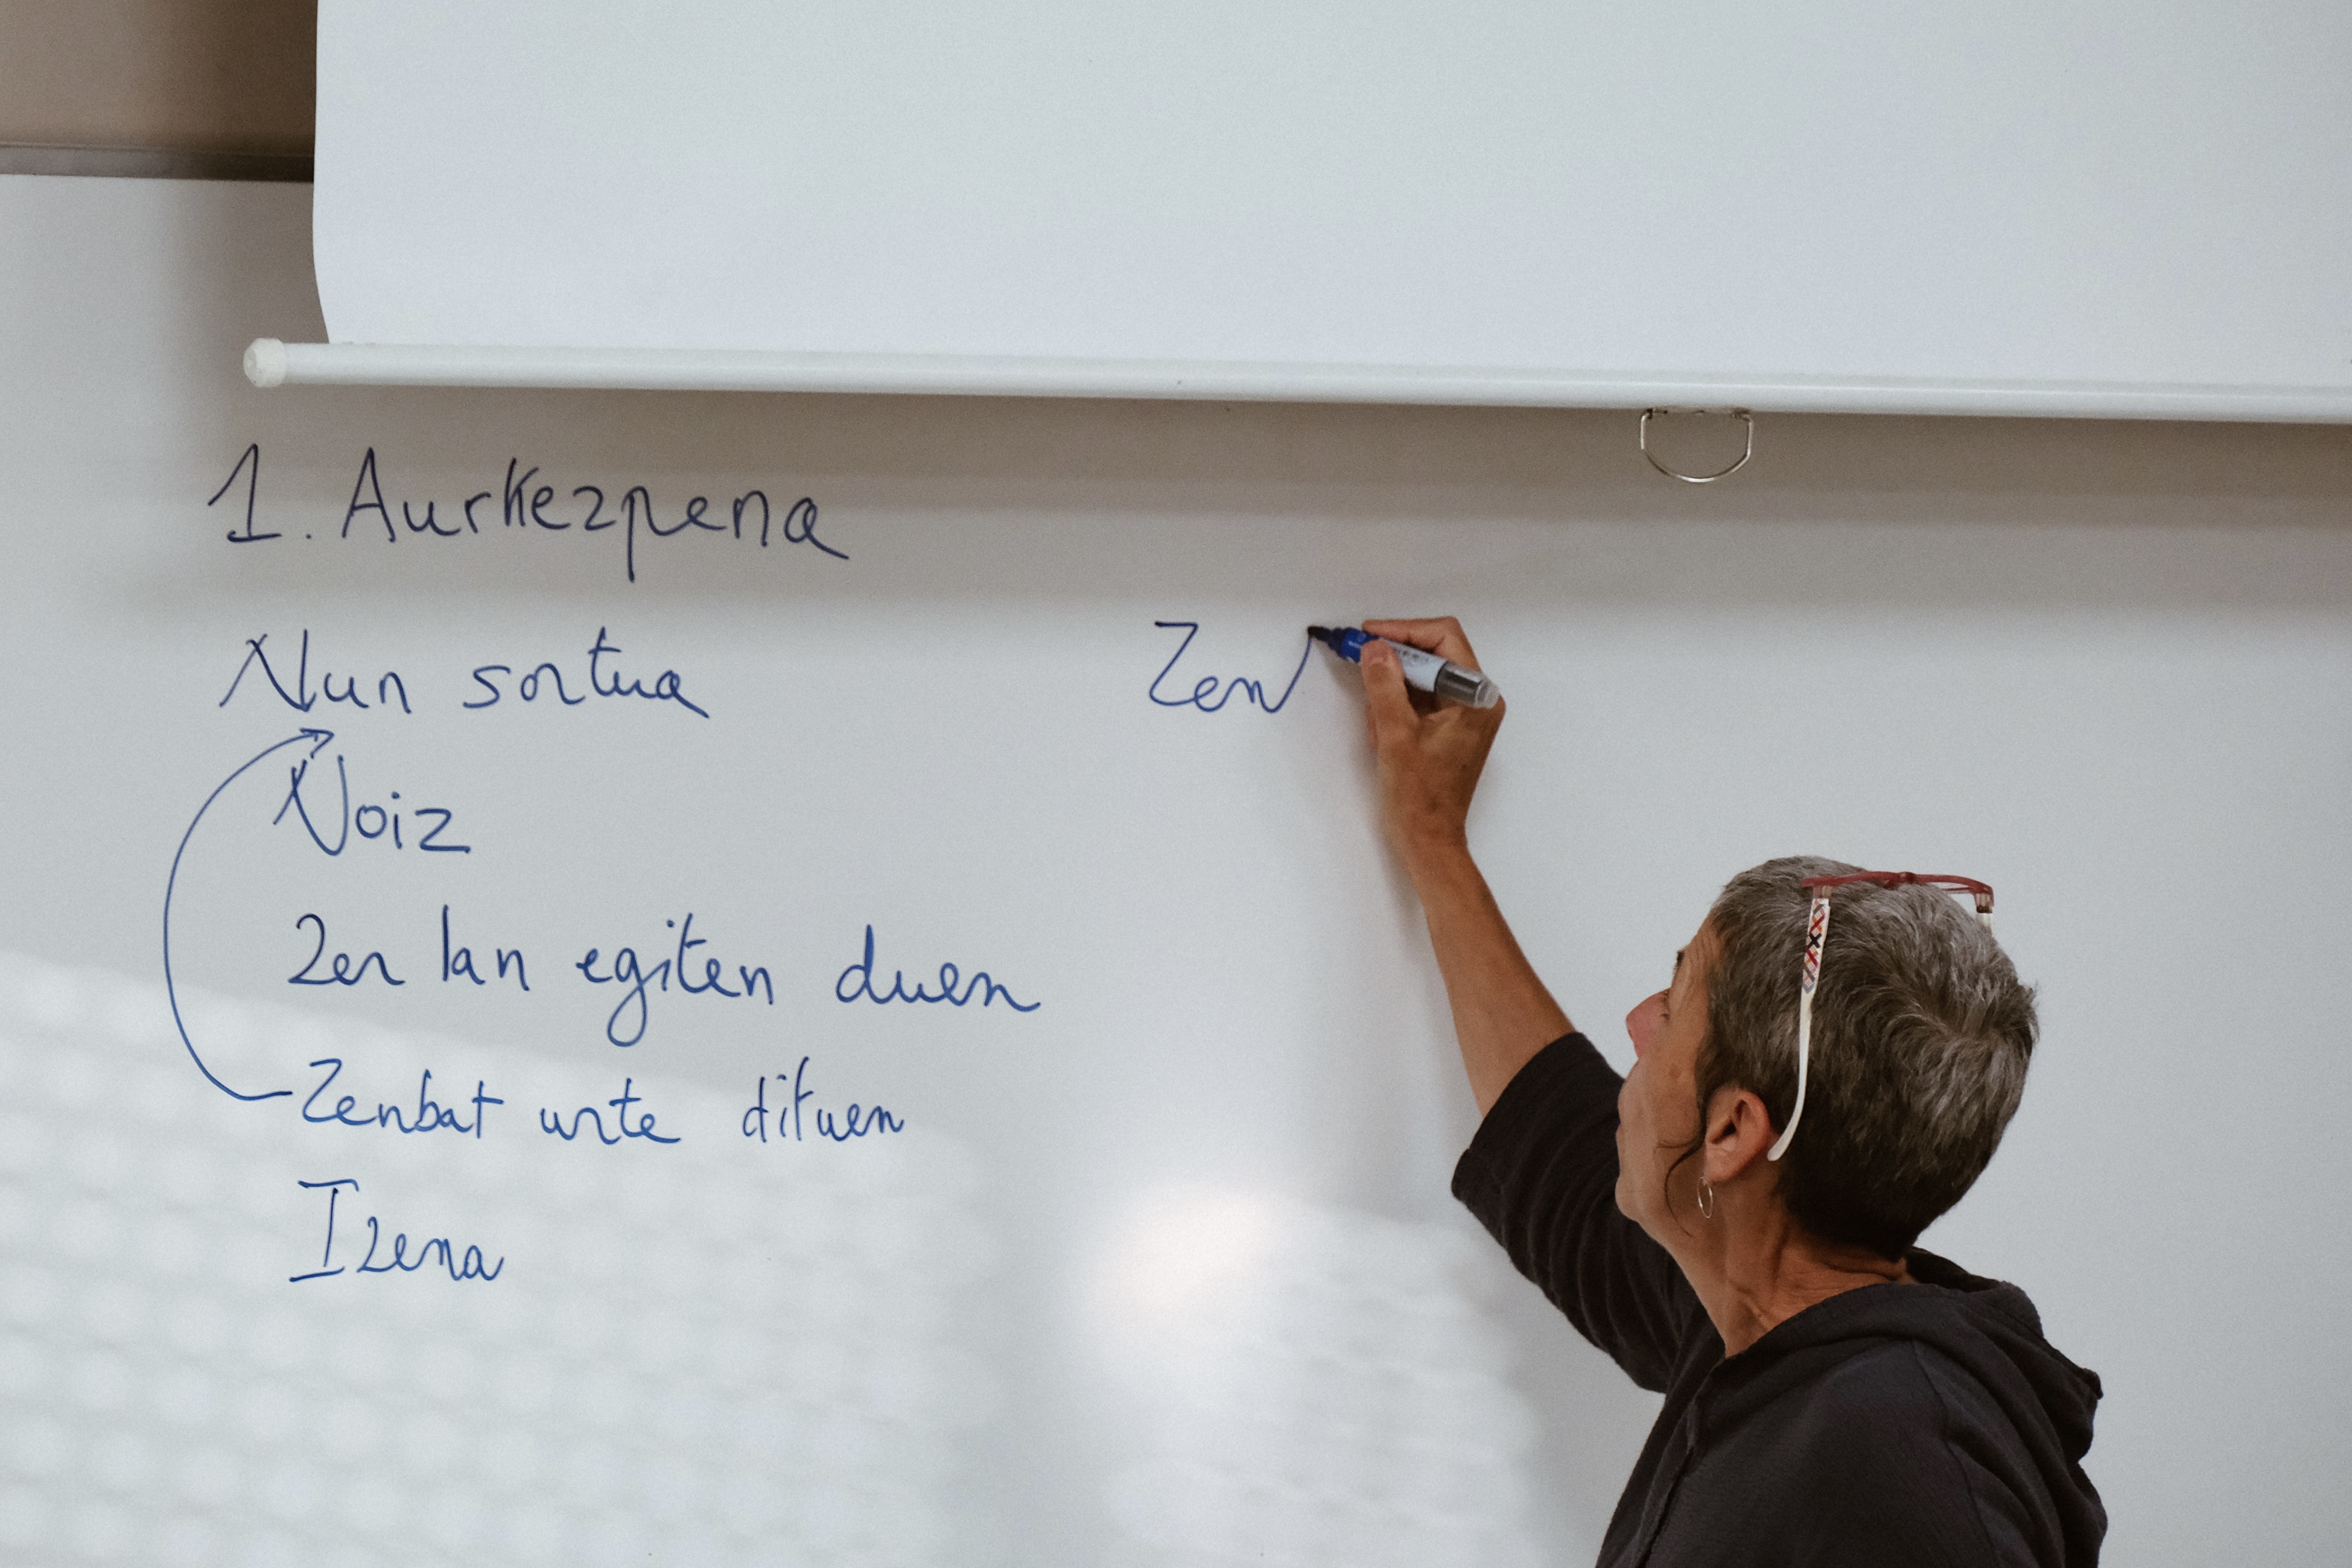 1. Aurkezpena
Nun sortua
Noiz
Zer lan egiten duen
Zenbat urte dituen
Izena
Zen